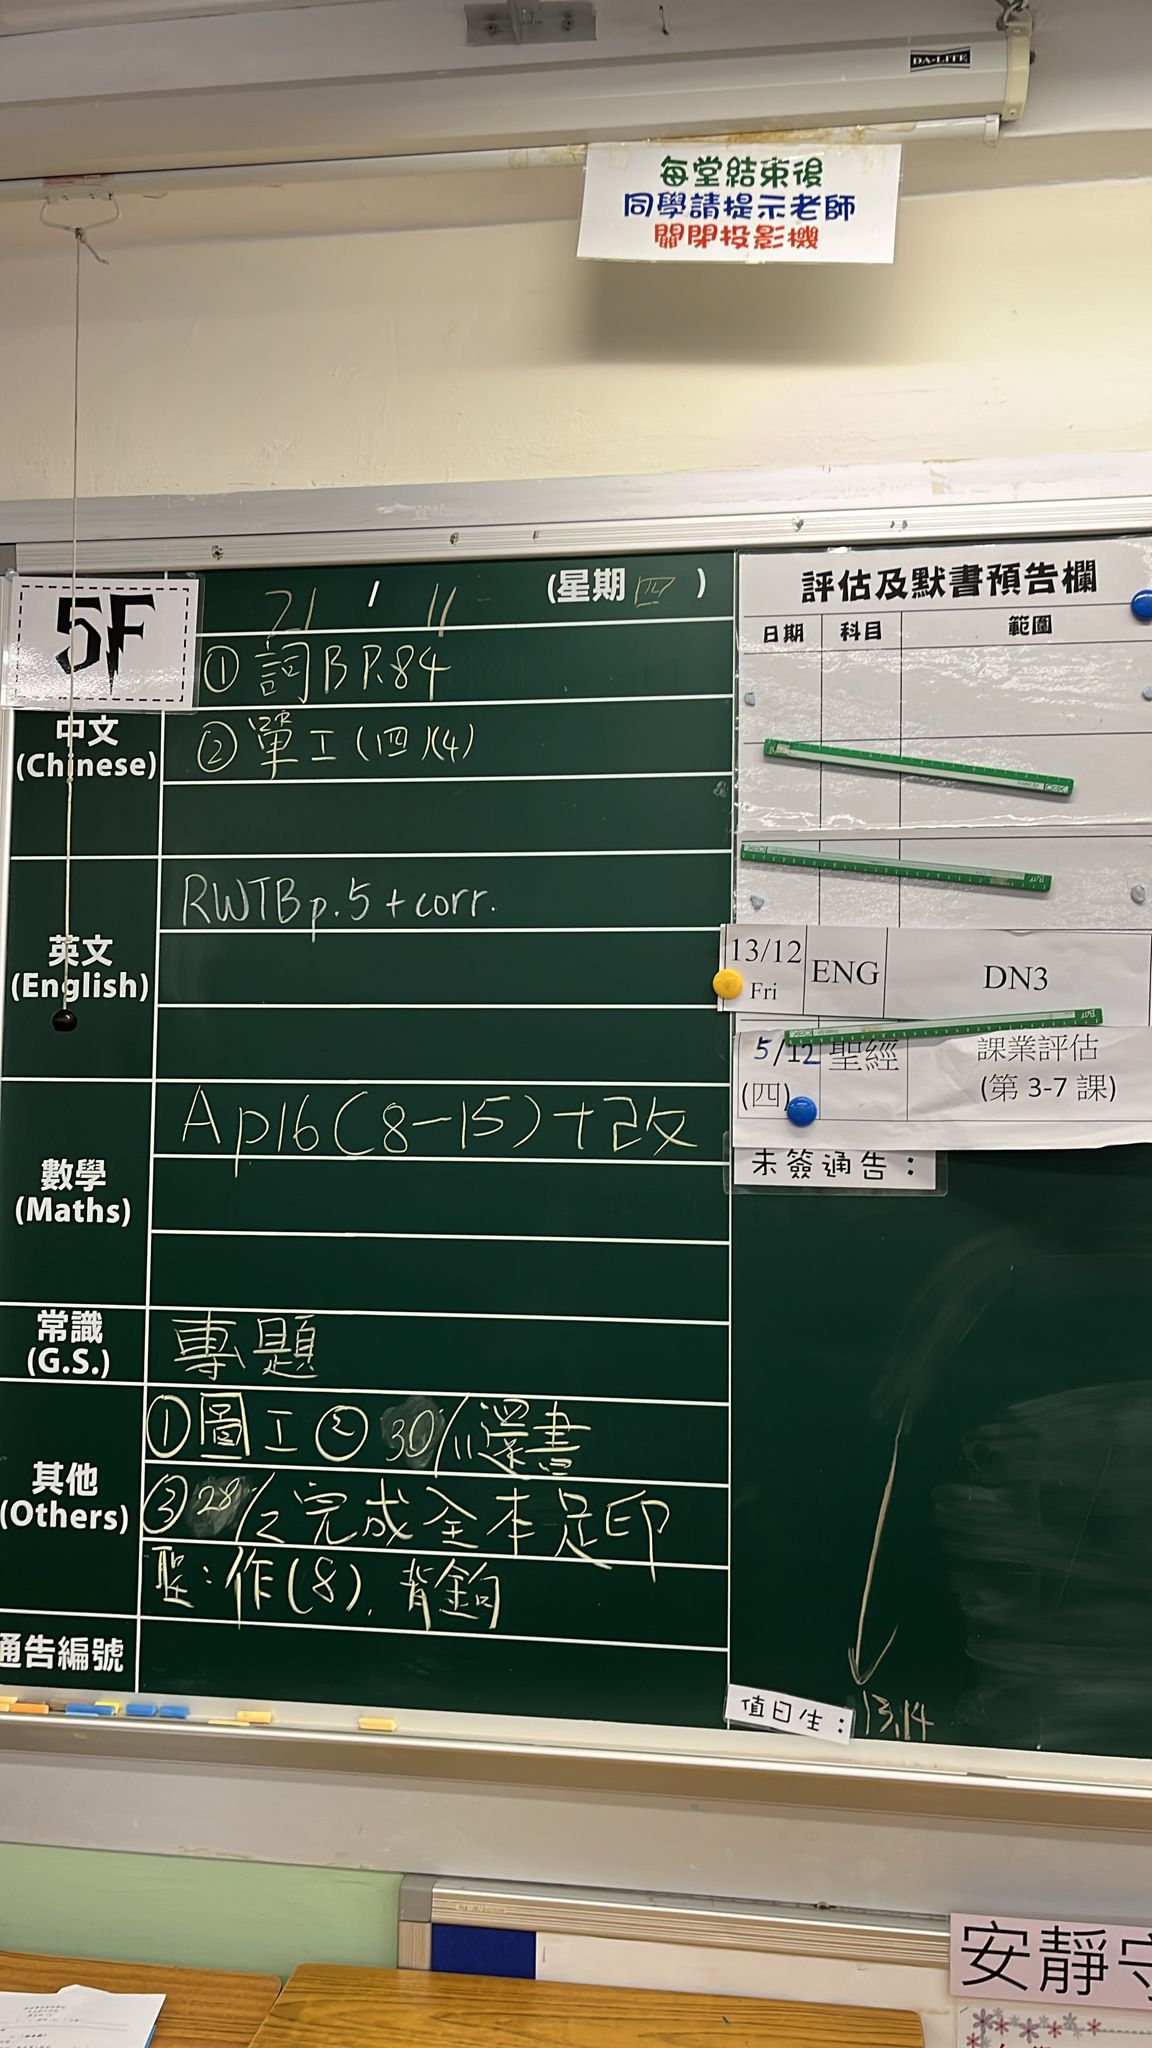 DA-LITE
每堂結束後
同學請提示老師
關閉投影機
5F
21 / 11 (星期四)
中文
(Chinese)
① 詞B P.84
② 單工(四)(4)
英文
(English)
RWTB p.5 + corr.
數學
(Maths)
A p16(8-15)+改
常識
(G.S.)
專題
其他
(Others)
① 圖工 ② 30/11還書
③ 28/2 完成全本足印
聖:作(8), 背鉤
通告編號
評估及默書預告欄
日期 科目 範圍
13/12
Fri
ENG
DN3
5/12
(四)
聖經
課業評估
(第 3-7 課)
未簽通告:
值日生: 13,14
安靜守